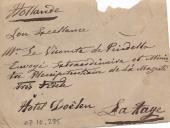 Hollande
Son Excellence
Mr. le Vicomte de Pindella
Envoyé Extraordinaire et Minis
tre Plénipotentiaire de Sa Majesté
Très Fidèle
Hotel Doelen
La Haye
07.10.295